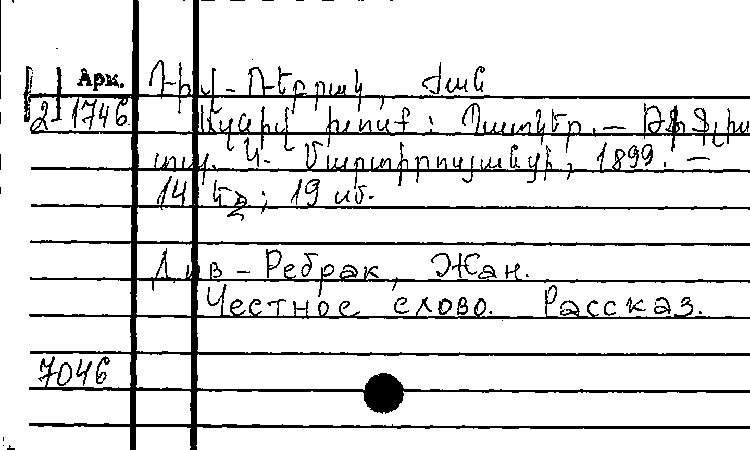 Арк. Դիվ-Ռեբրակ, Ժան
[2] 1746 Ազնիվ խոսք: Պատկեր. — Թիֆլիս
տպ. Մարտիրոսյանցի, 1899. —
14 եջ; 19 սմ.
Див-Ребрак, Жан.
Честное слово. Рассказ.
7046